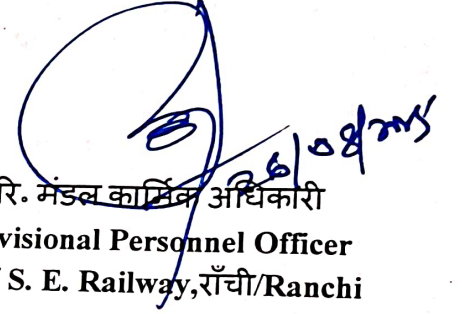 रि. मंडल कार्मिक अधिकारी
visional Personnel Officer
S. E. Railway,राँची/Ranchi